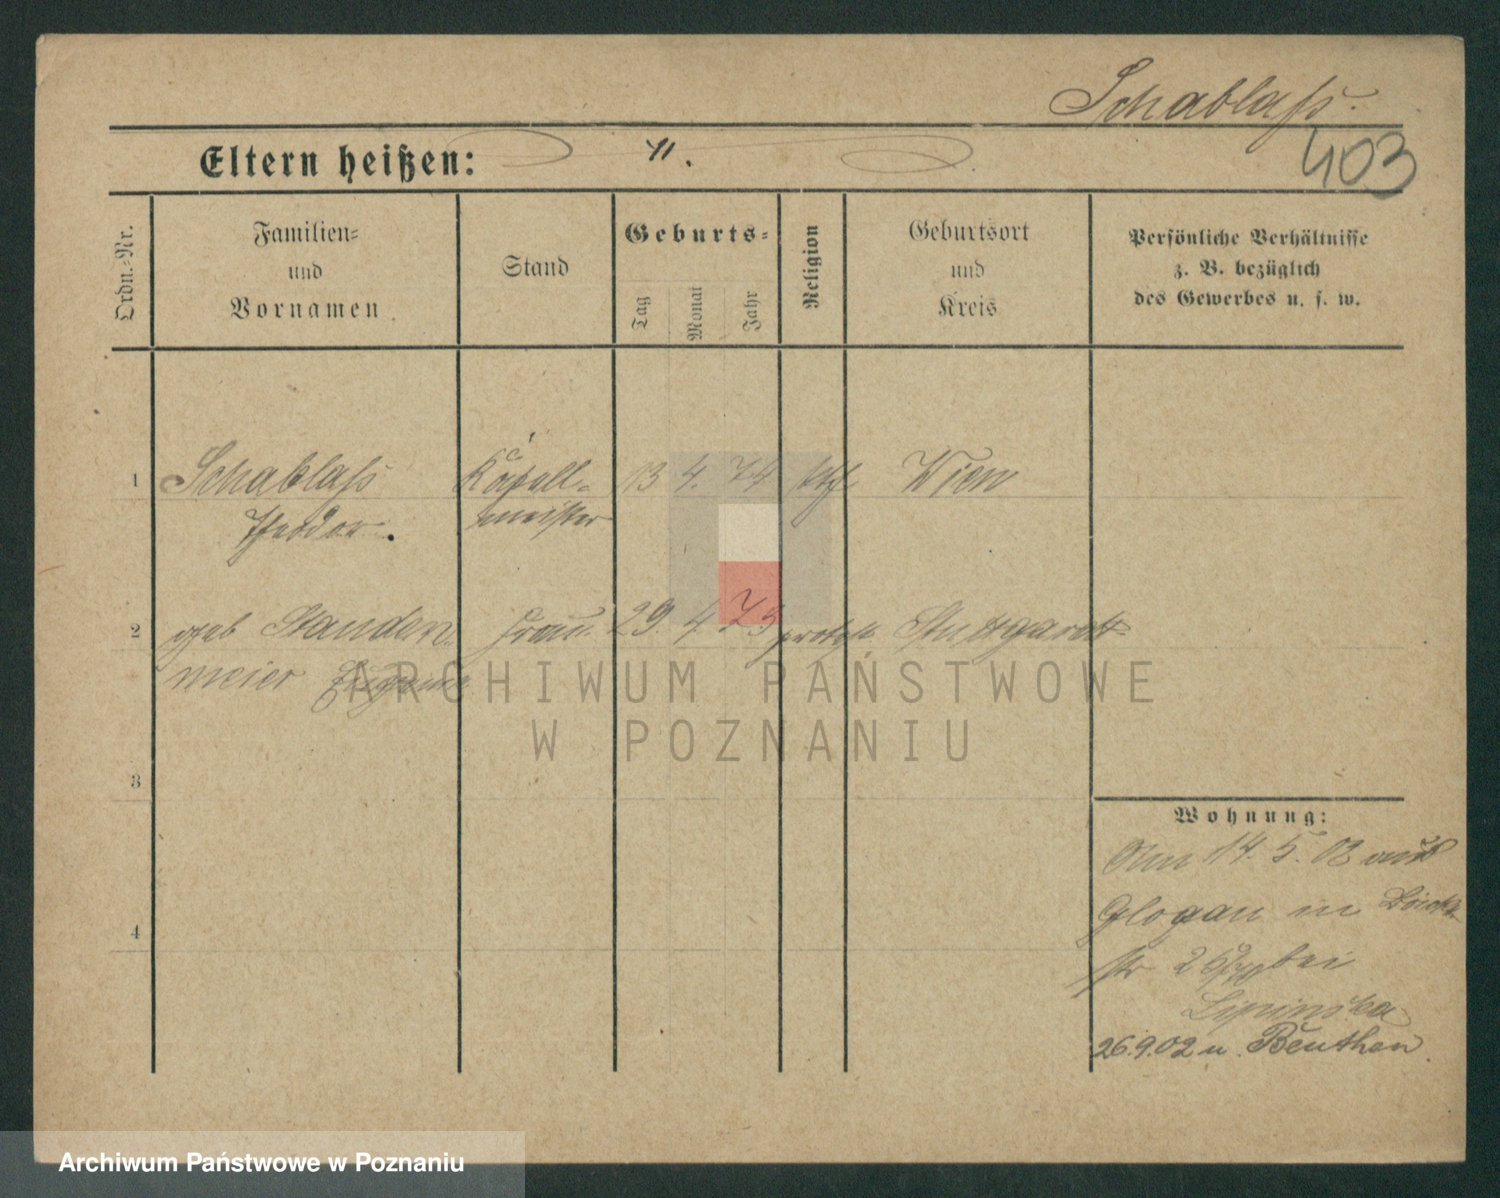 Schablaß.
403
Eltern heißen:
Ordn.-Nr.
Familien-
und
Vornamen
Stand
Geburts-
Tag
Monat
Jahr
Religion
Geburtsort
und
Kreis
Persönliche Verhältnisse
z. B. bezüglich
des Gewerbes u. s. w.
1 Schablaß Kapell- 13 4. 74 kth. Wien
Theodor. meister
2 geb Standen Frau 29. 4. 73 protest. Stuttgart
meier Eugenie
3
4
Wohnung:
Am 14. 5. 02 aus
Glogau in
str bei
Lipinska
26.9.02 n. Beuthen.
ARCHIWUM PAŃSTWOWE
W POZNANIU
Archiwum Państwowe w Poznaniu